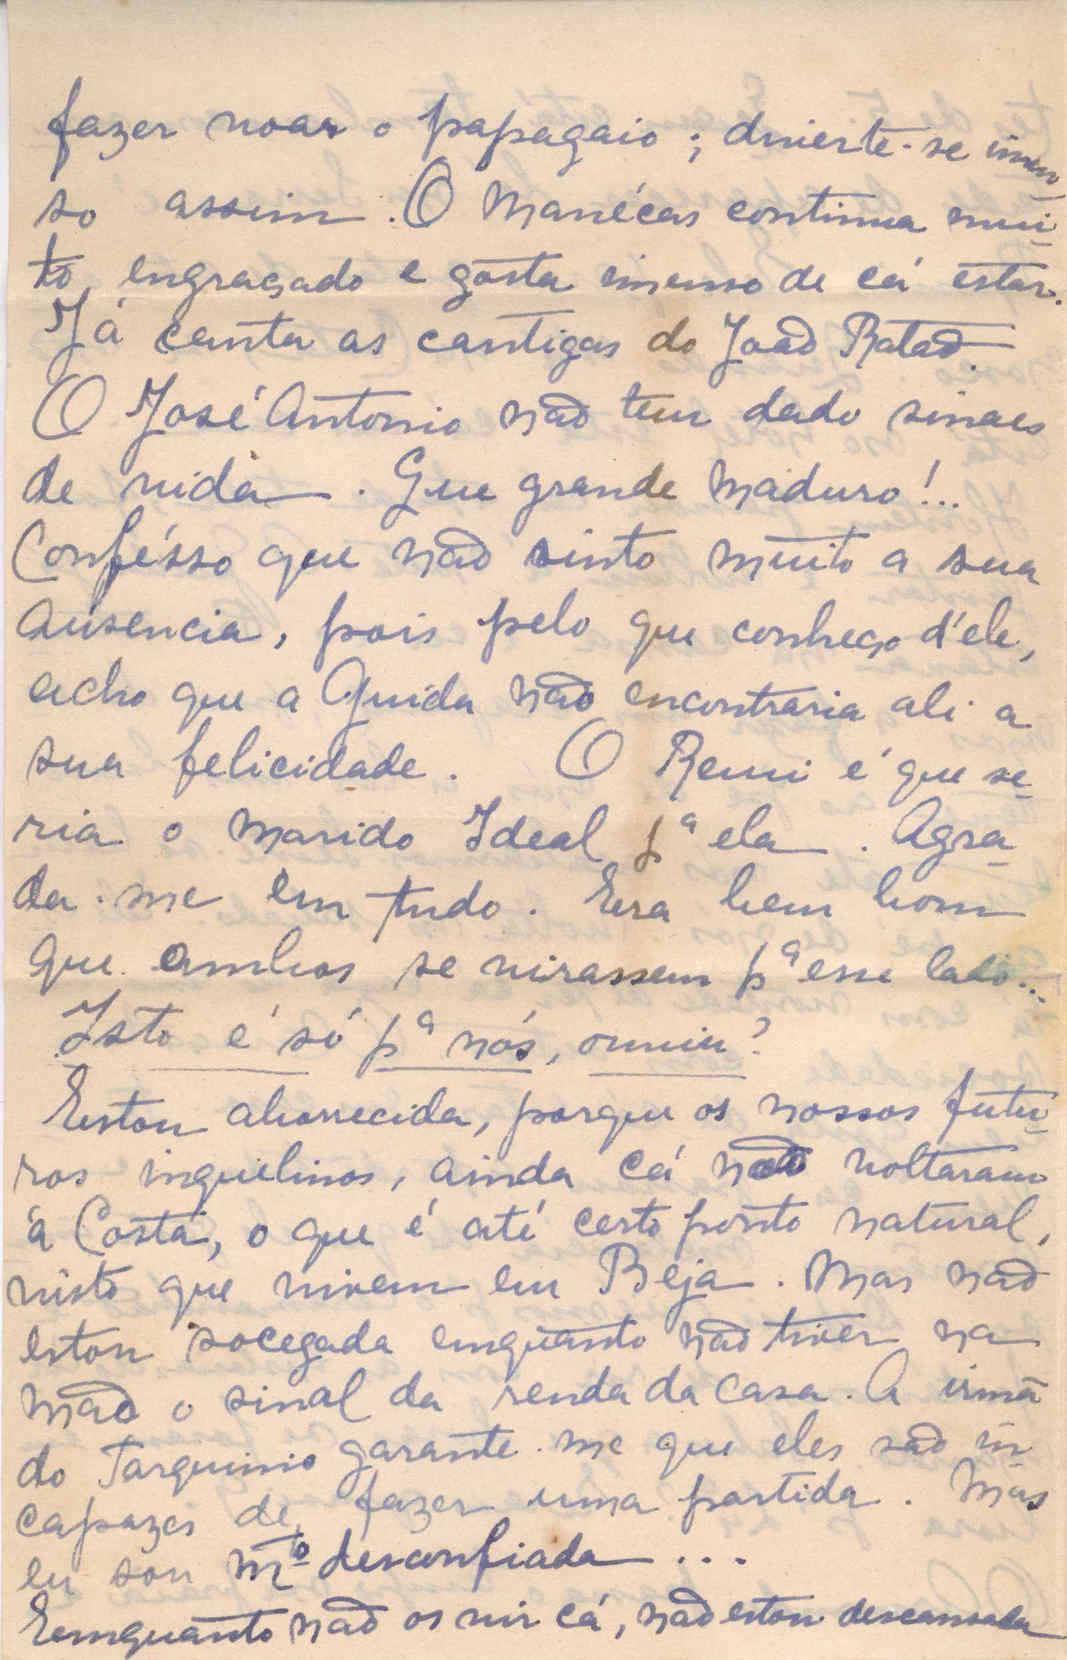 fazer voar o papagaio; divierte-se imen-
so assim. O Manécas continua mui-
to engraçado e gosta imenso de cá estar.
Já canta as cantigas do João Ratão.
O José Antonio não tem dado sinaes
de vida. Que grande maduro!..
Confésso que não sinto muito a sua
ausencia, pois pelo que conheço d'ele,
acho que a Guida não encontraria ali a
sua felicidade. O Remi é que se-
ria o marido Ideal pª ela. Agra-
da-me em tudo. Era bem bom
que ambos se virassem pª esse lado...
Isto é só pª nós, ouviu?
Estou aborrecida, porque os nossos futu-
ros inquelinos, ainda cá não voltaram
á Costa, o que é até certo ponto natural,
visto que vivem em Beja. Mas não
estou socegada emquanto não tiver na
mão o sinal da renda da casa. A irmã
do Tarquinio garante-me que eles são in
capazes de fazer uma partida. Mas
eu sou mtº desconfiada...
Eemquanto não os vir cá, não estou descansada